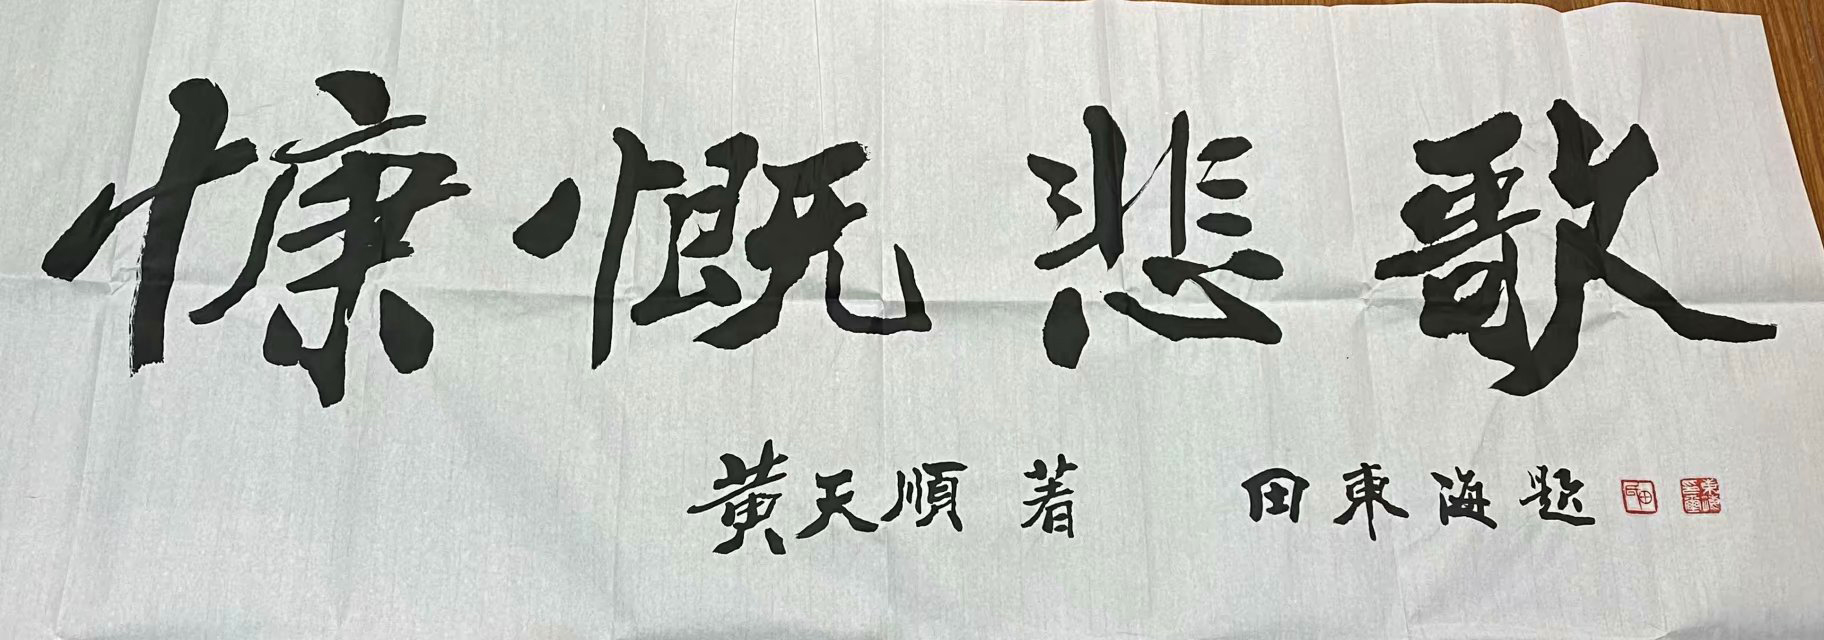 慷慨悲歌
黄天順 著 田東海 题